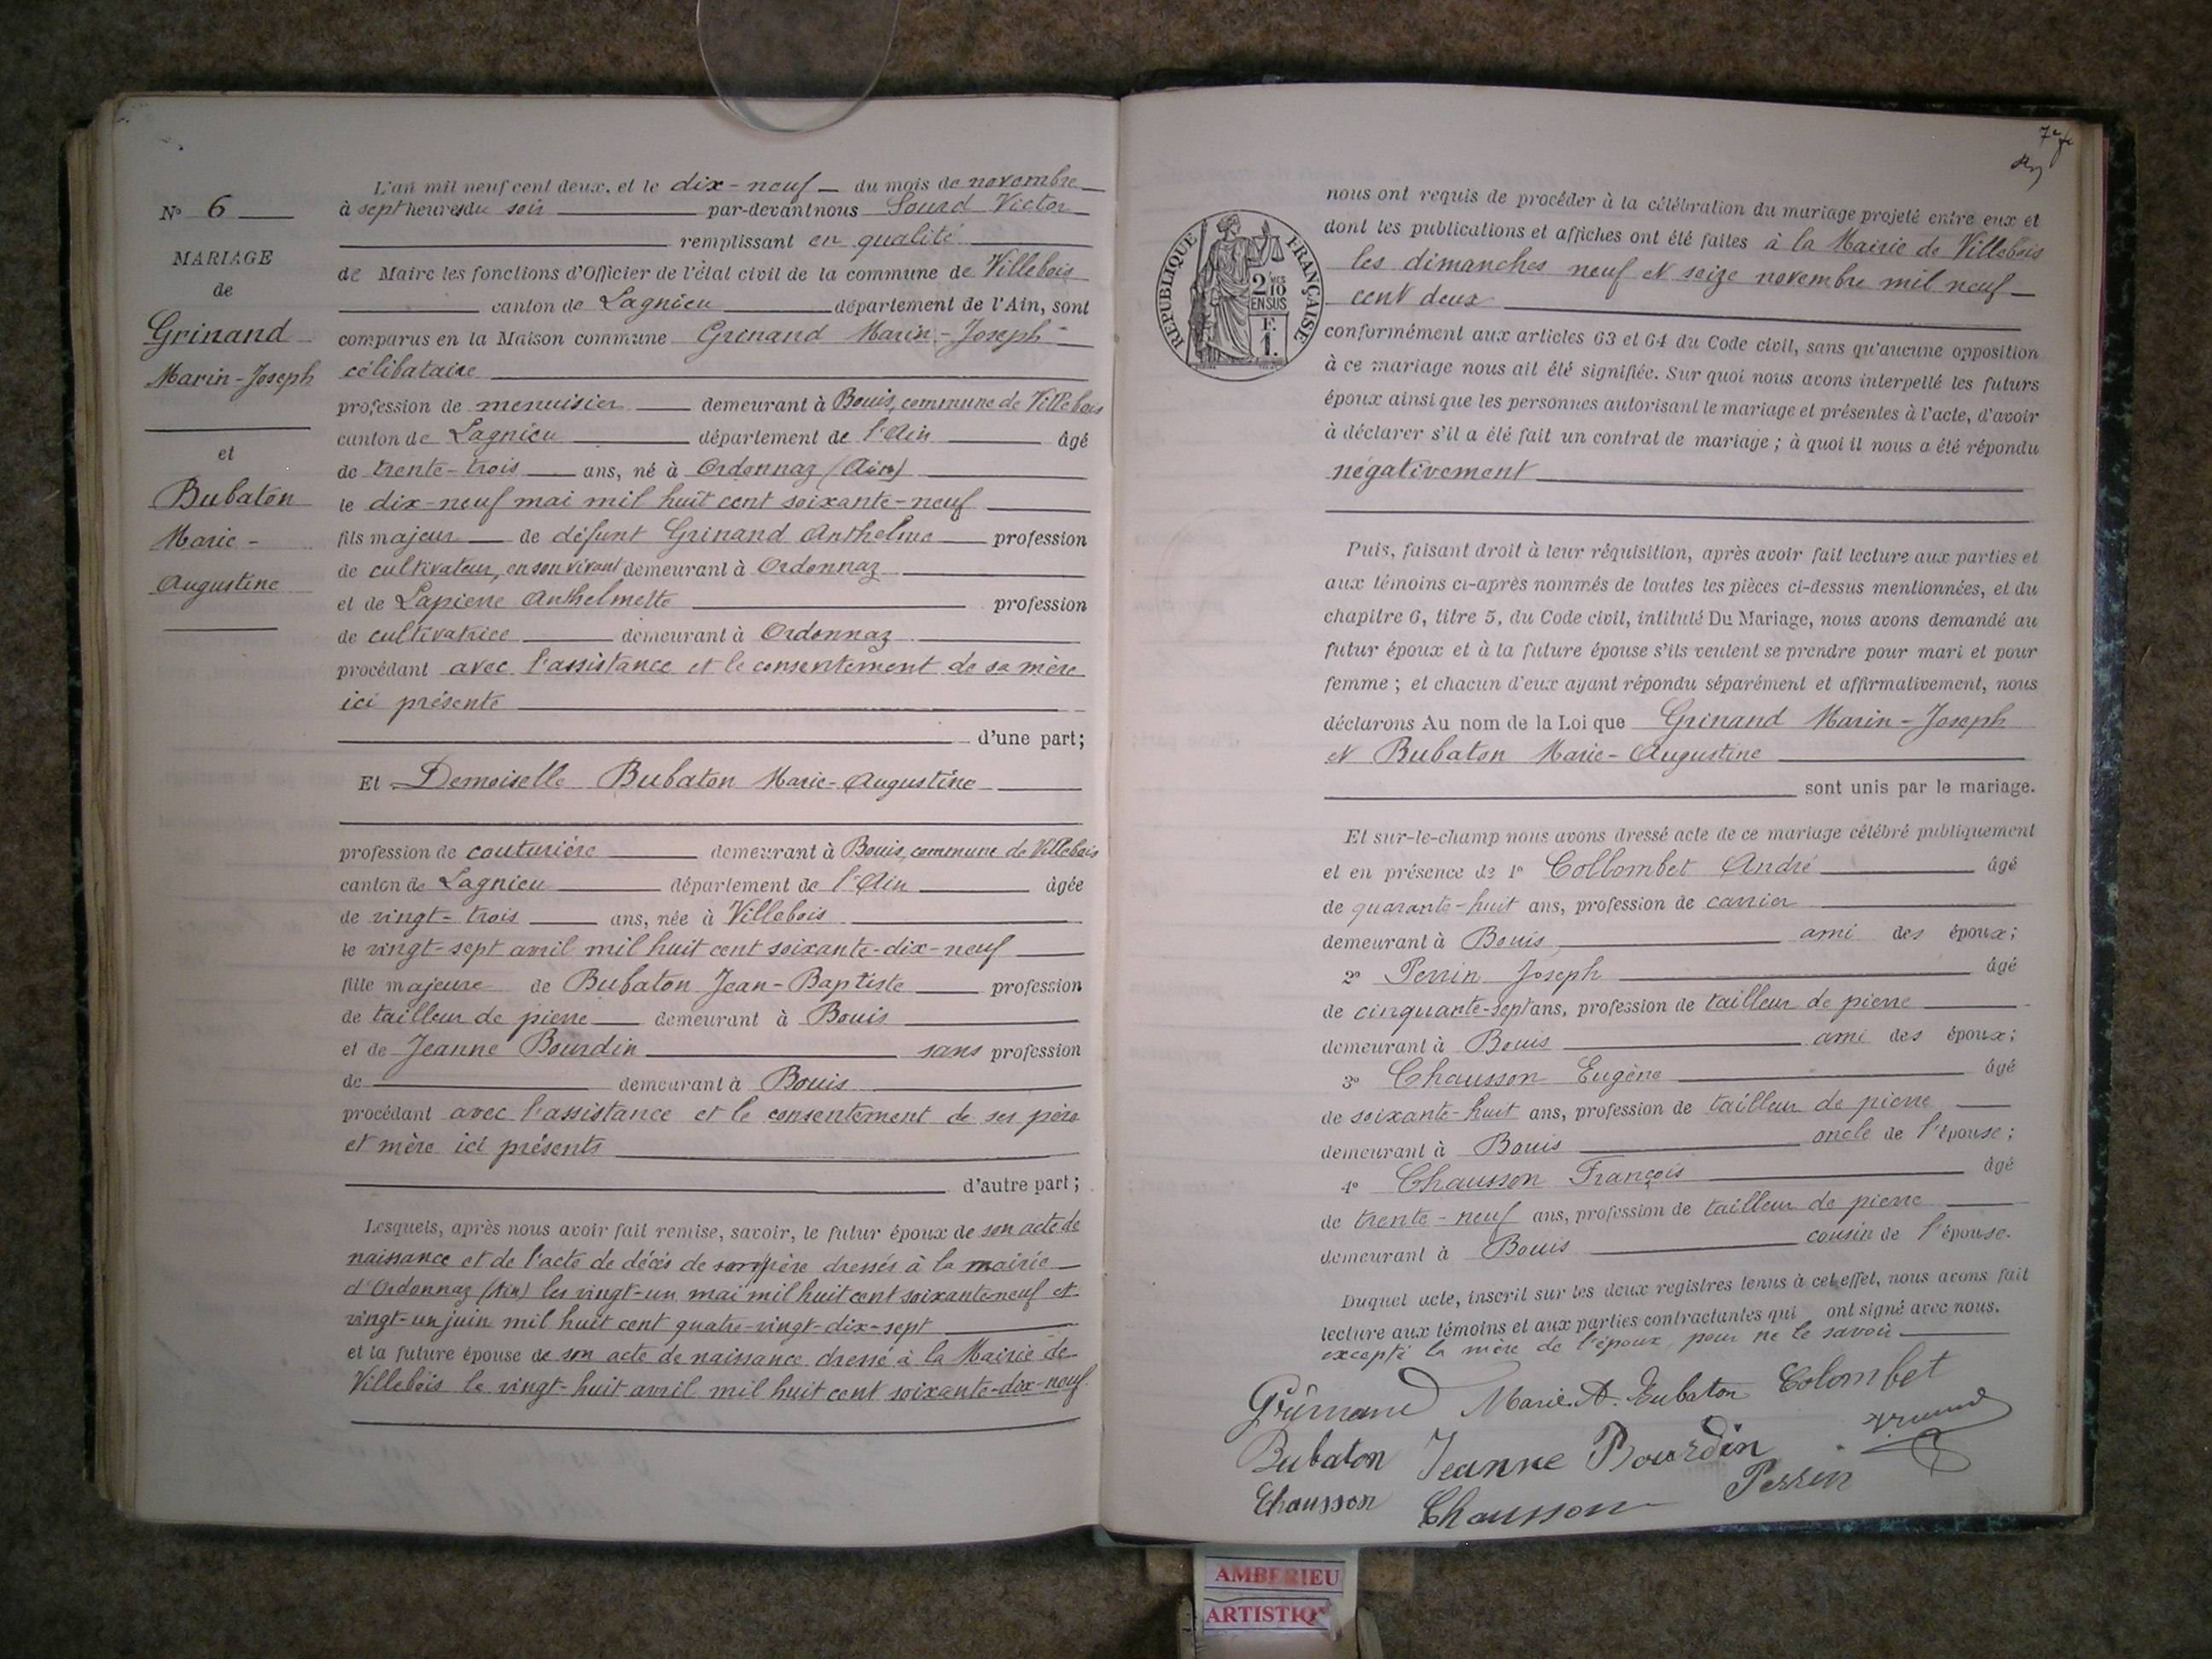 L'an mil neuf cent deux, et le dix-neuf du mois de novembre
à sept heures du soir par-devant nous Sourd Victor
remplissant en qualité
de Maire les fonctions d'Officier de l'État civil de la commune de Villebois
canton de Lagnieu département de l'Ain, sont
comparus en la Maison commune Grinand Marin-Joseph
célibataire
profession de menuisier demeurant à Bouis, commune de Villebois
canton de Lagnieu département de l'Ain âgé
de trente-trois ans, né à Ordonnaz (Ain)
le dix-neuf mai mil huit cent soixante-neuf
fils majeur de défunt Grinand Anthelme profession
de cultivateur, en son vivant demeurant à Ordonnaz
et de Lapierre Anthelmette profession
de cultivatrice demeurant à Ordonnaz
procédant avec l'assistance et le consentement de sa mère
ici présente
d'une part;
Et Demoiselle Bubaton Marie-Augustine
profession de couturière demeurant à Bouis, commune de Villebois
canton de Lagnieu département de l'Ain âgée
de vingt-trois ans, née à Villebois
le vingt-sept avril mil huit cent soixante-dix-neuf
fille majeure de Bubaton Jean-Baptiste profession
de tailleur de pierre demeurant à Bouis
et de Jeanne Bourdin sans profession
de demeurant à Bouis
procédant avec l'assistance et le consentement de ses père
et mère ici présents
d'autre part;
Lesquels, après nous avoir fait remise, savoir, le futur époux de son acte de
naissance et de l'acte de décès de son père dressés à la mairie
d'Ordonnaz (Ain) les vingt-un mai mil huit cent soixante neuf et
vingt-un juin mil huit cent quatre-vingt-dix-sept
et la future épouse de son acte de naissance dressé à la Mairie de
Villebois le vingt-huit avril mil huit cent soixante-dix-neuf.
N° 6
MARIAGE
de
Grinand
Marin-Joseph
et
Bubaton
Marie-
Augustine
7e
RÉPUBLIQUE FRANÇAISE
2 10
EN SUS
F.
1.
nous ont requis de procéder à la célébration du mariage projeté entre eux et
dont les publications et affiches ont été faites à la Mairie de Villebois
les dimanches neuf et seize novembre mil neuf
cent deux
conformément aux articles 63 et 64 du Code civil, sans qu'aucune opposition
à ce mariage nous ait été signifiée. Sur quoi nous avons interpellé les futurs
époux ainsi que les personnes autorisant le mariage et présentes à l'acte, d'avoir
à déclarer s'il a été fait un contrat de mariage; à quoi il nous a été répondu
négativement
Puis, faisant droit à leur réquisition, après avoir fait lecture aux parties et
aux témoins ci-après nommés de toutes les pièces ci-dessus mentionnées, et du
chapitre 6, titre 5, du Code civil, intitulé Du Mariage, nous avons demandé au
futur époux et à la future épouse s'ils veulent se prendre pour mari et pour
femme; et chacun d'eux ayant répondu séparément et affirmativement, nous
déclarons Au nom de la Loi que Grinand Marin-Joseph
et Bubaton Marie-Augustine
sont unis par le mariage.
Et sur-le-champ nous avons dressé acte de ce mariage célébré publiquement
et en présence de 1° Collombet André âgé
de quarante-huit ans, profession de carrier
demeurant à Bouis, ami des époux;
2° Perrin Joseph âgé
de cinquante-sept ans, profession de tailleur de pierre
demeurant à Bouis ami des époux;
3° Chausson Eugène âgé
de soixante-huit ans, profession de tailleur de pierre
demeurant à Bouis oncle de l'épouse;
4° Chausson François âgé
de trente-neuf ans, profession de tailleur de pierre
demeurant à Bouis cousin de l'épouse.
Duquel acte, inscrit sur les deux registres tenus à cet effet, nous avons fait
lecture aux témoins et aux parties contractantes qui ont signé avec nous.
excepté la mère de l'époux, pour ne le savoir
Grinand Marie A. Bubaton Colombet
Bubaton Jeanne Bourdin
Chausson Chausson Perrin
AMBERIEU
ARTISTIQ